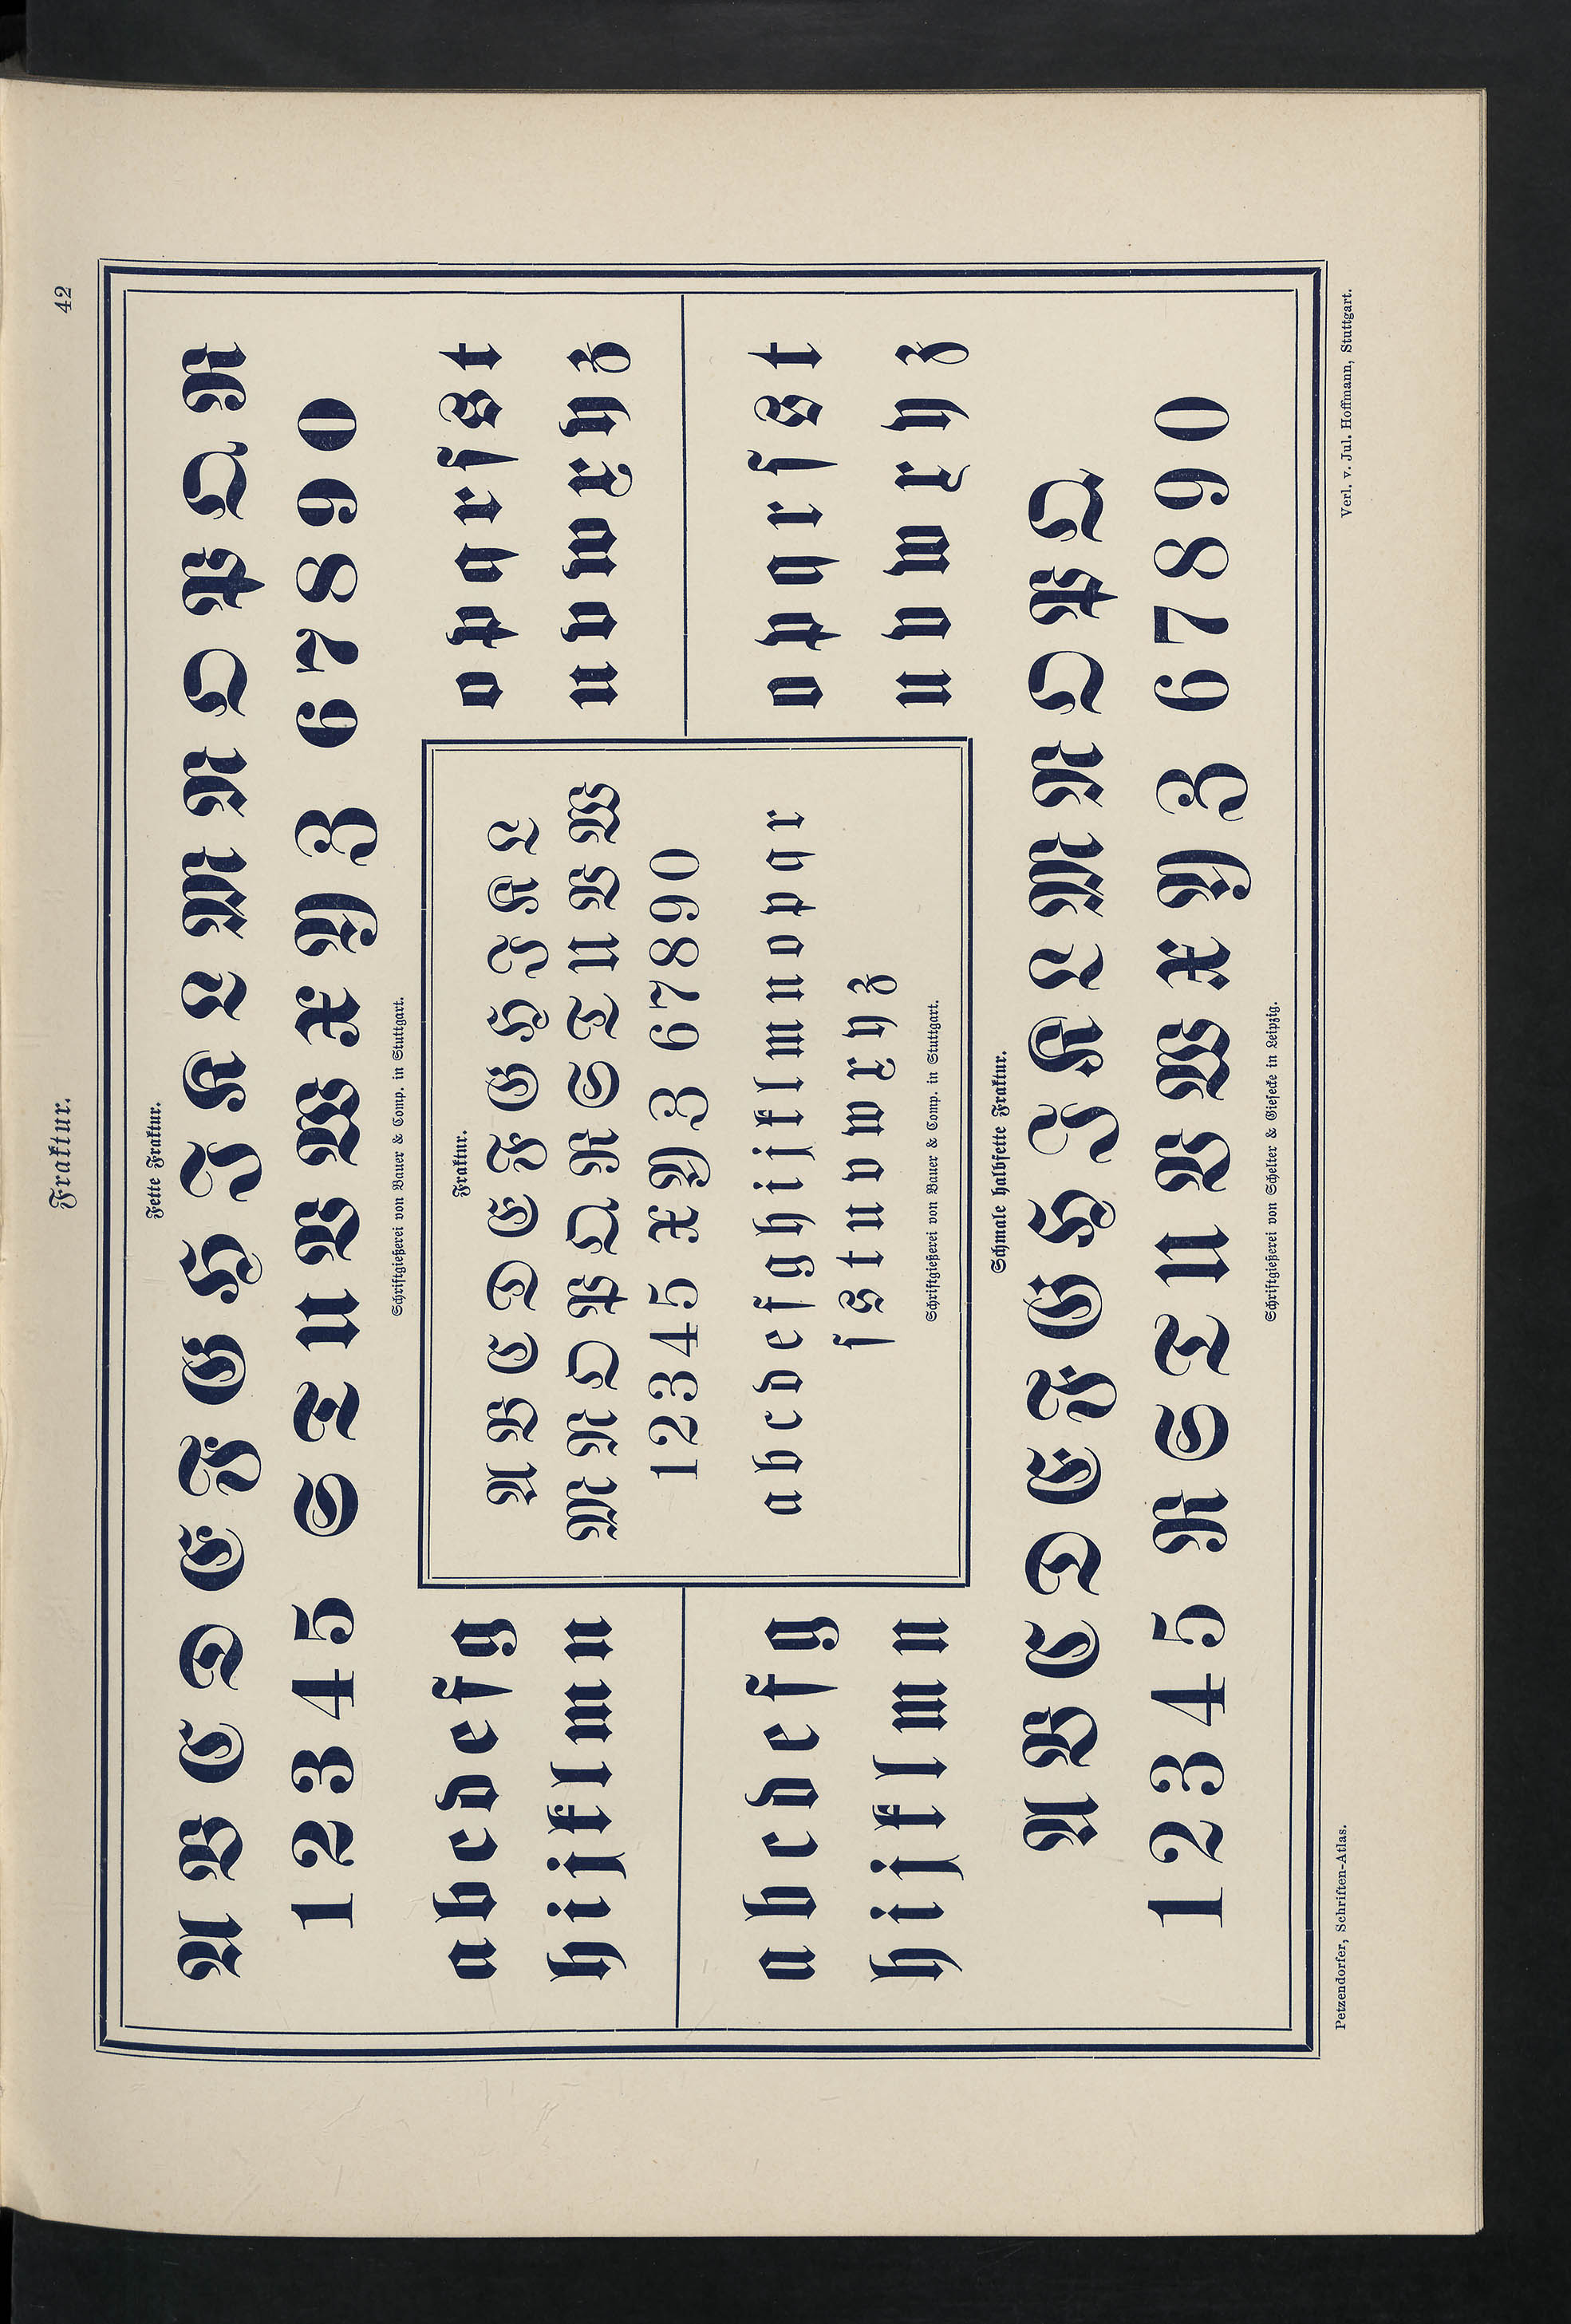 Fraktur.
42
Fette Fraktur.
A B C D E F G H I K L M N O P Q R
1 2 3 4 5 S T U V W X Y Z 6 7 8 9 0
Schriftgießerei von Bauer & Comp. in Stuttgart.
a b c d e f g
h i j k l m n
o p q r ſ s t
u v w x y z
Fraktur.
A B C D E F G H I K L
M N O P Q R S T U V W
1 2 3 4 5 X Y Z 6 7 8 9 0
a b c d e f g h i j k l m n o p q r
ſ s t u v w x y z
Schriftgießerei von Bauer & Comp. in Stuttgart.
a b c d e f g
h i j k l m n
o p q r ſ s t
u v w x y z
Schmale halbfette Fraktur.
A B C D E F G H I K L M N O P Q
1 2 3 4 5 R S T U V W X Y Z 6 7 8 9 0
Schriftgießerei von Schelter & Gieſecke in Leipzig.
Petzendorfer, Schriften-Atlas.
Verl. v. Jul. Hoffmann, Stuttgart.